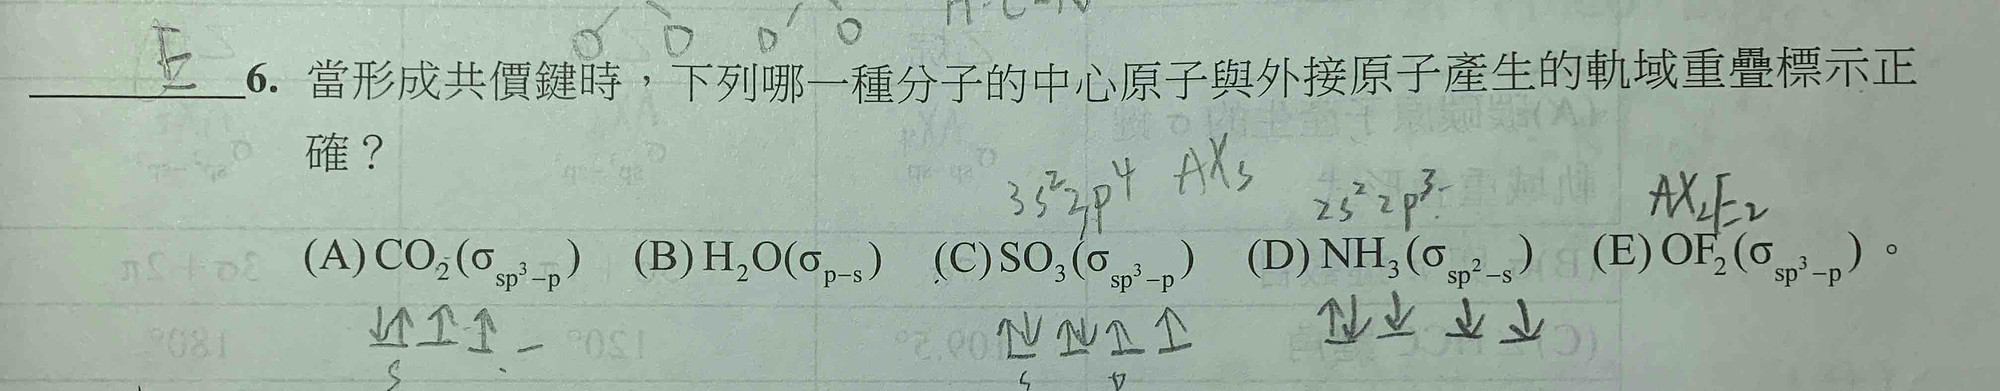 O O O O H-C-N
E 6. 當形成共價鍵時，下列哪一種分子的中心原子與外接原子產生的軌域重疊標示正
確？
3s²3p⁴ AX₃ 2s²2p³ AX₂E₂
(A)CO₂(σsp³−p) (B)H₂O(σp−s) (C)SO₃(σsp³−p) (D)NH₃(σsp²−s) (E)OF₂(σsp³−p)。
↓↑ ↑ ↑ − ↑↓ ↑↓ ↑ ↑ ↑↓ ↓ ↓ ↓
s s p